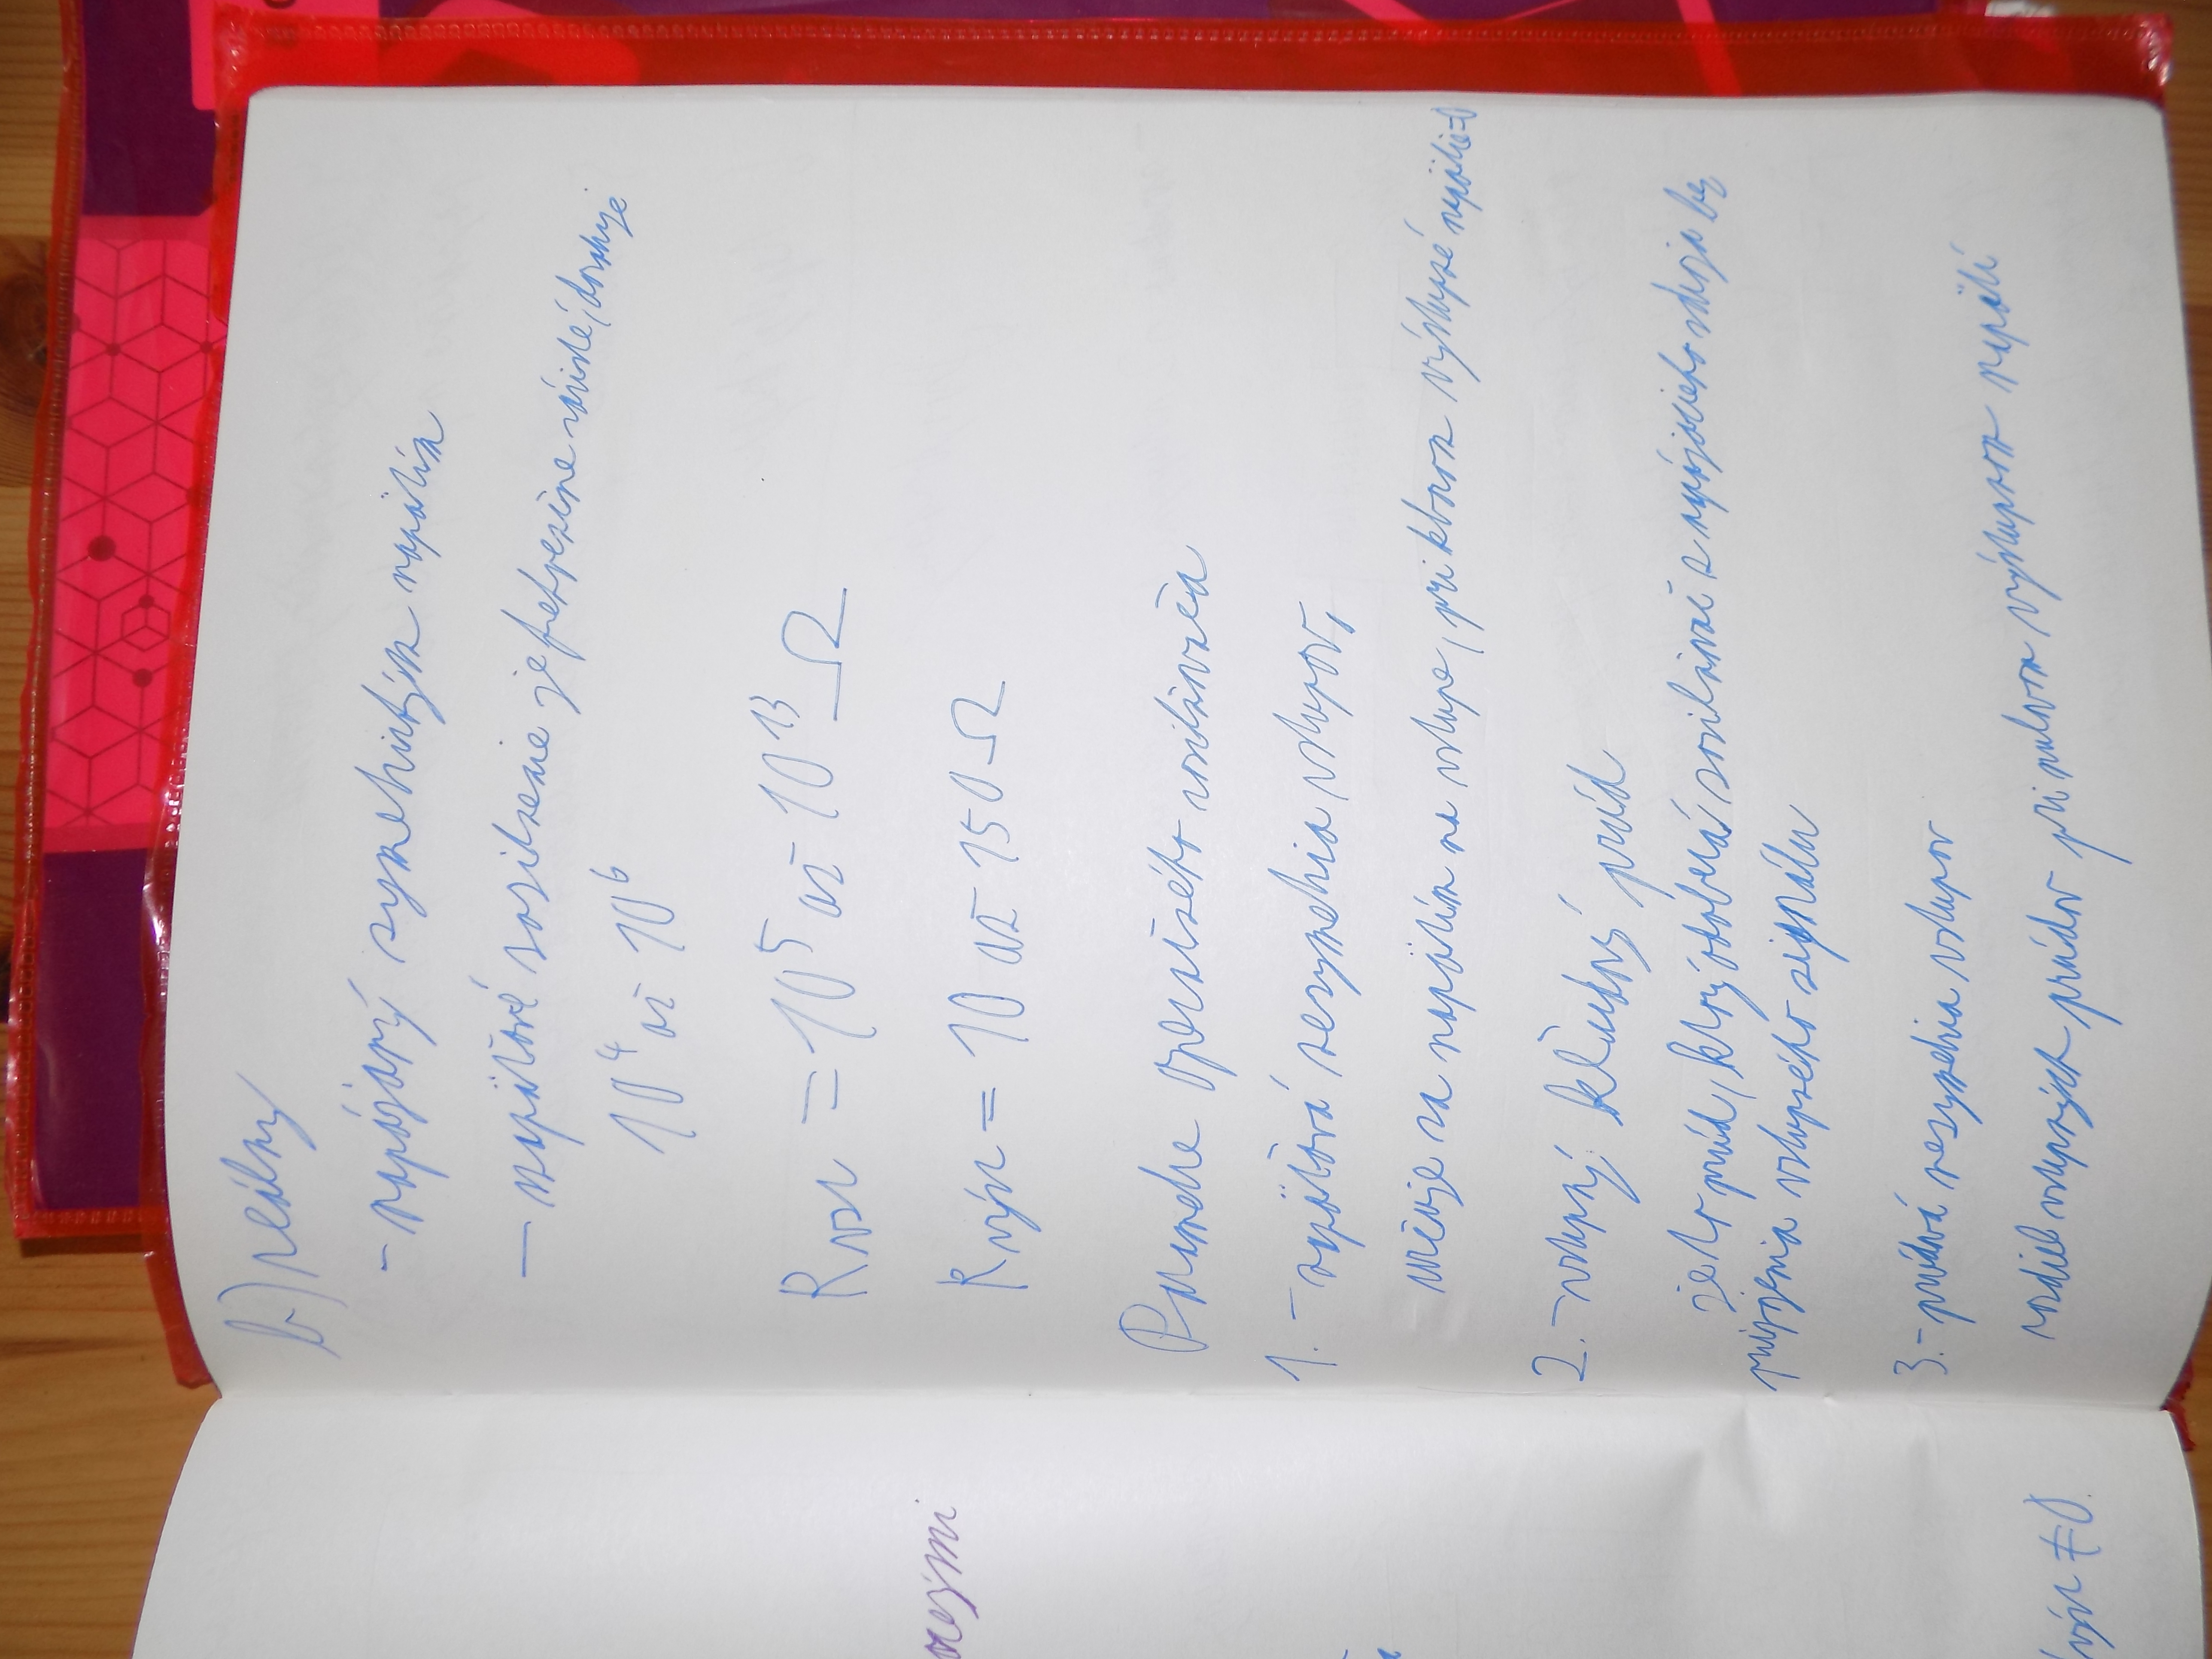 b) reálny
- napájaný symetrickým napätím
- napäťové zosilnenie je frekvenčne závislé, dosahuje
10⁴ až 10⁶
Rvst = 10⁵ až 10¹³ Ω
Rvýst = 10 až 150 Ω
Parametre operačného zosilňovača
1. - napäťová nesymetria vstupov,
určuje sa napätím na vstupe, pri ktorom výstupné napätie=0
2. - vstupný kľudový prúd
je to prúd, ktorý odoberá zosilňovač z napájacieho zdroja bez
pripojenia vstupného signálu
3. - prúdová nesymetria vstupov
rozdiel vstupných prúdov pri nulovom výstupnom napätí
≠0